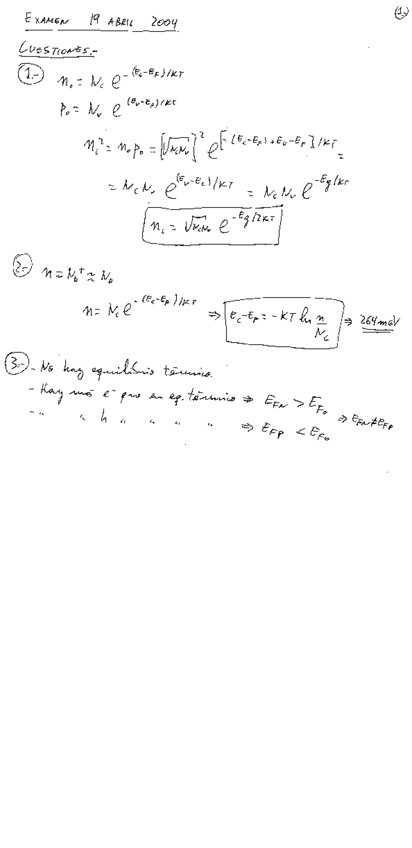 (1.)
EXAMEN 19 ABRIL 2004
CUESTIONES.-
1.- n₀ = N_c e^{-(E_c-E_F)/KT}
p₀ = N_v e^{(E_v-E_F)/KT}
n_i² = n₀p₀ = [√N_cN_v]² e^{[-(E_c-E_F)+E_v-E_F]/KT} =
= N_cN_v e^{(E_v-E_c)/KT} = N_cN_v e^{-E_g/KT}
n_i = √N_cN_v e^{-E_g/2KT}
2.- n ≈ N_D⁺ ≈ N_D
n = N_c e^{-(E_c-E_F)/KT} ⇒ E_c-E_F = -KT ln n/N_c ⇒ 264 meV
3.- - No hay equilibrio térmico.
- Hay más e⁻ que en eq. térmico ⇒ E_{FN} > E_{F₀} ⇒ E_{FN} ≠ E_{FP}
- " " h " " " " ⇒ E_{FP} < E_{F₀}